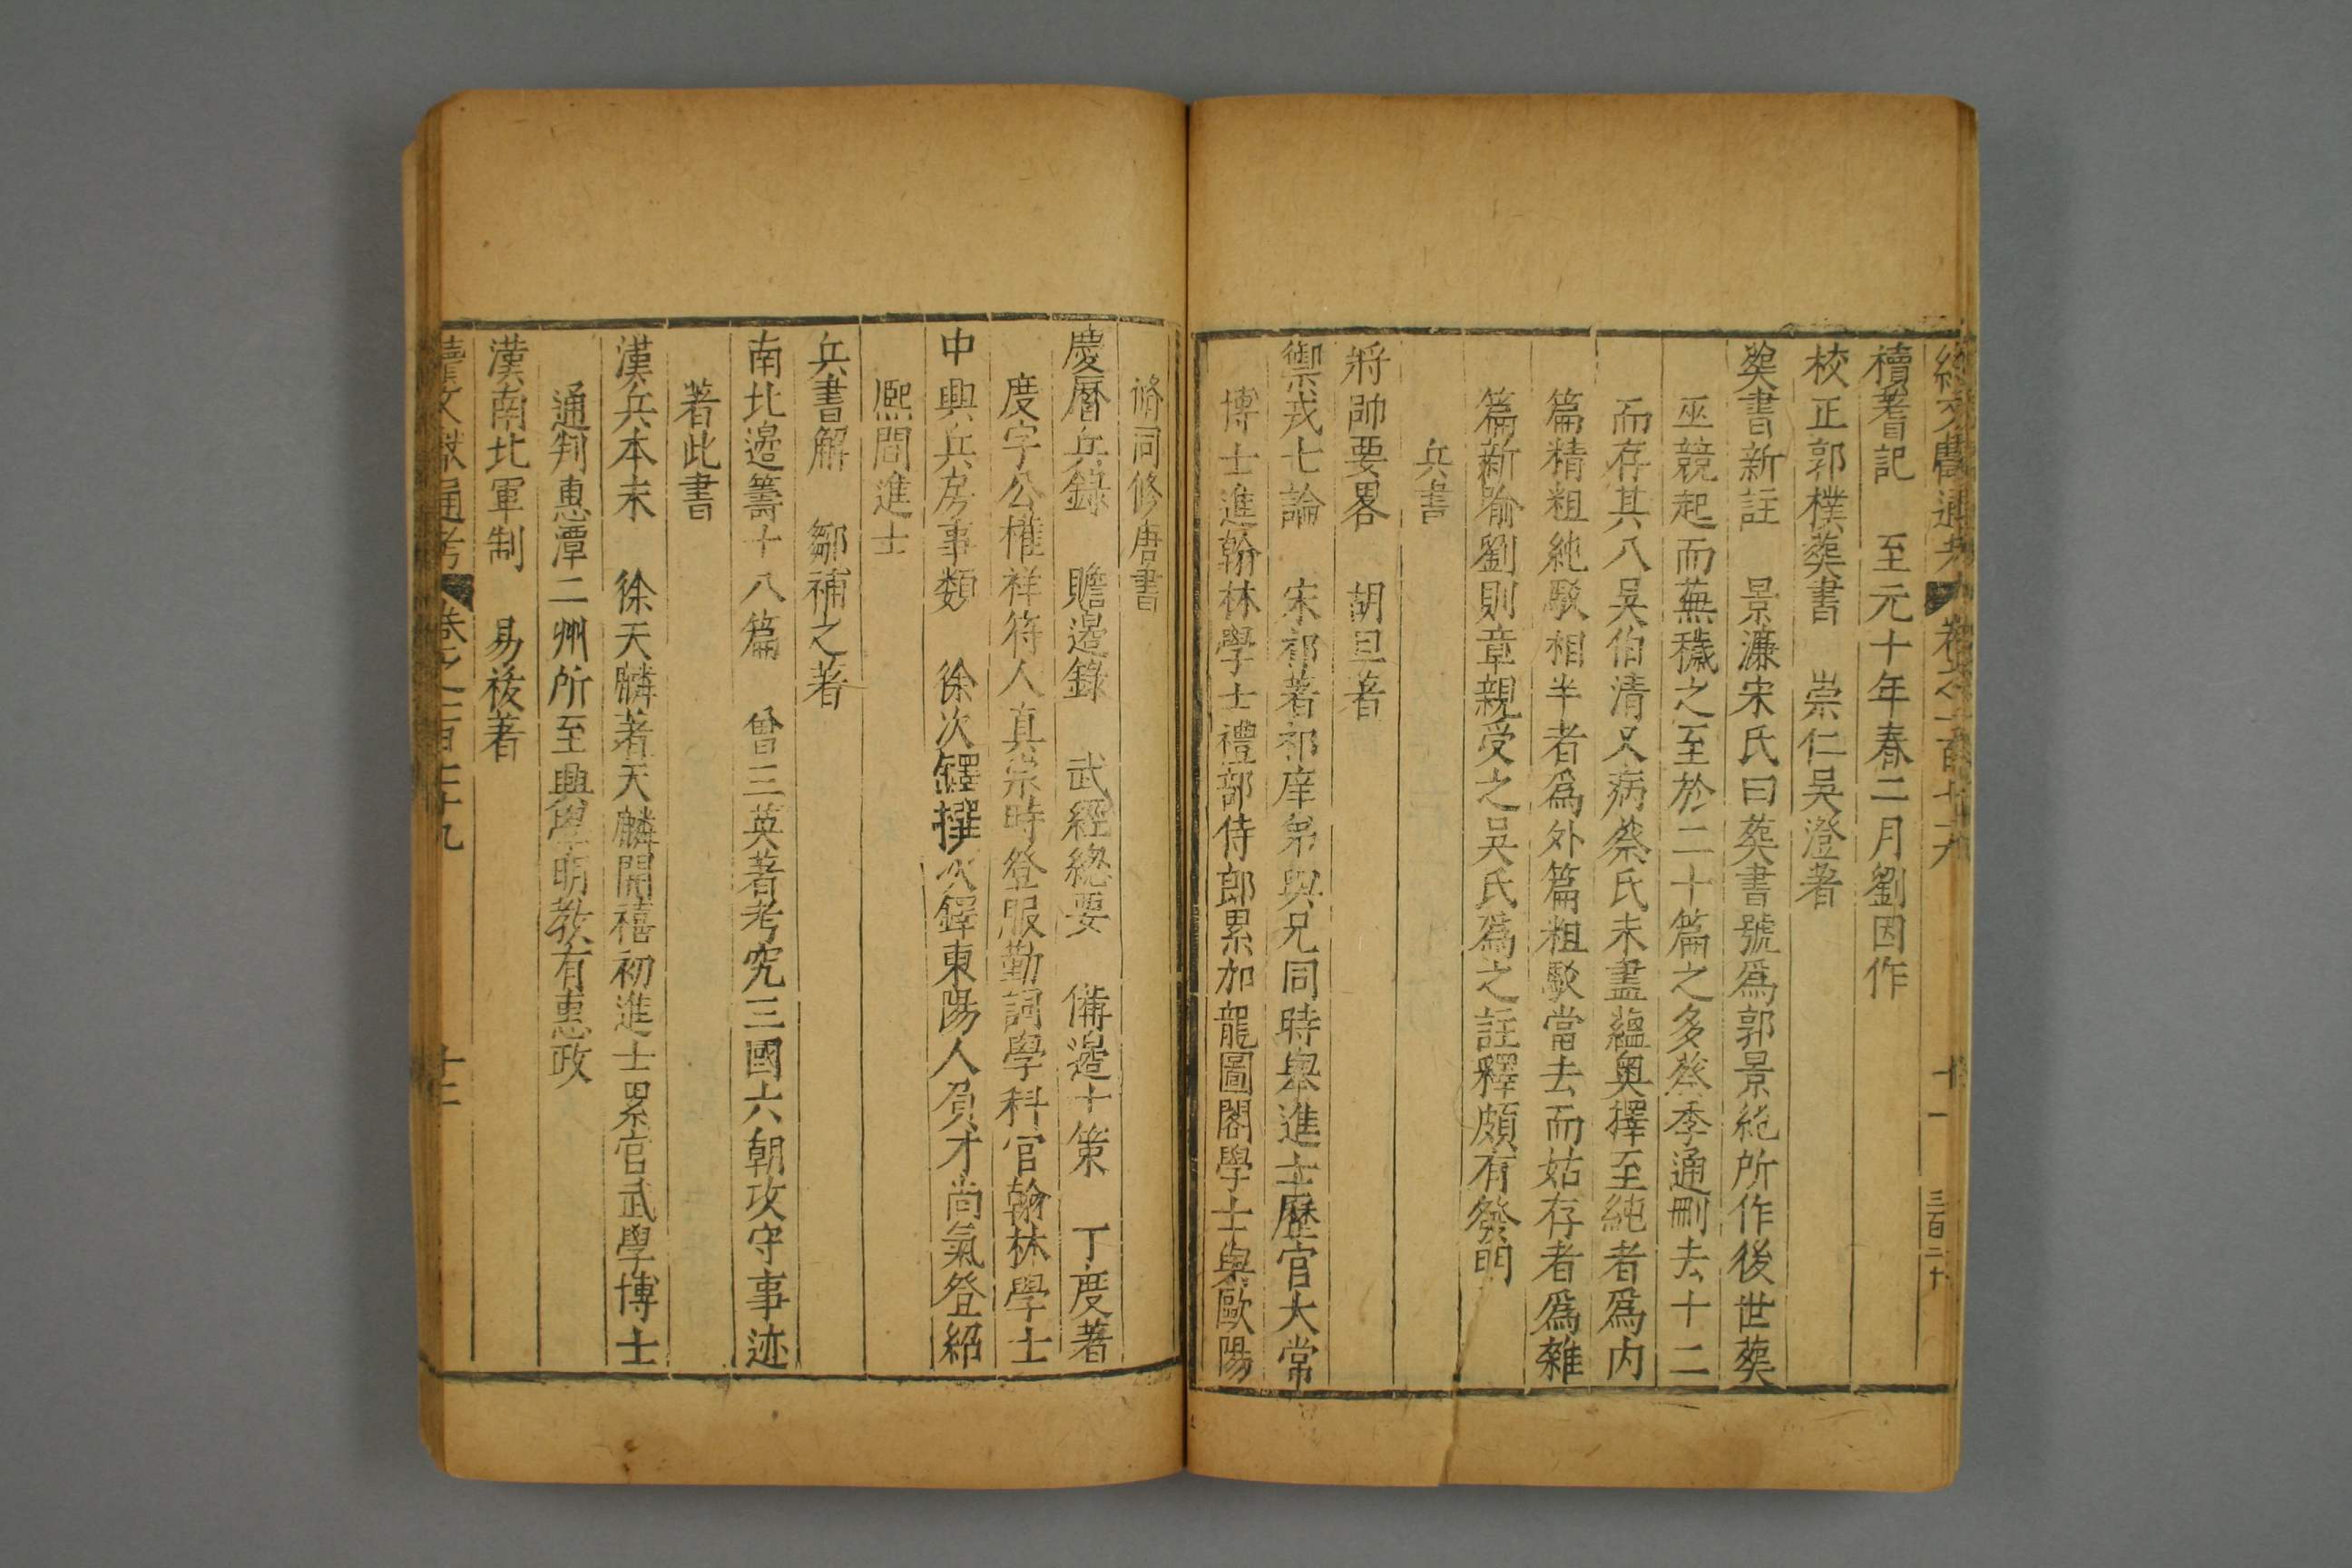 續文獻通考 卷之一百七十九 十一 三百二十
櫝蓍記 至元十年春二月劉因作
校正郭樸葬書 崇仁吳澄著
葬書新註 景濂宋氏曰葬書號爲郭景純所作後世葬
巫競起而蕪穢之至於二十篇之多蔡季通刪去十二
而存其八吳伯清又病蔡氏未盡蘊奧擇至純者爲内
篇精粗純駁相半者爲外篇粗駁當去而姑存者爲雜
篇新喻劉則章親受之吳氏爲之註釋頗有發明
兵書
將帥要畧 胡旦著
禦戎七論 宋祁著祁庠弟與兄同時舉進士歷官太常
博士進翰林學士禮部侍郎累加龍圖閣學士與歐陽
脩同修唐書
慶曆兵錄 贍邊錄 武經總要 備邊十策 丁度著
度字公權祥符人真宗時登服勤詞學科官翰林學士
中興兵房事類 徐次鐸撰次鐸東陽人負才尚氣登紹
熙間進士
兵書解 鄒補之著
南北邊籌十八篇 曾三英著考究三國六朝攻守事迹
著此書
漢兵本末 徐天麟著天麟開禧初進士累官武學博士
通判惠潭二州所至興學明教有惠政
漢南北軍制 易祓著
續文獻通考 卷之一百七十九 十二